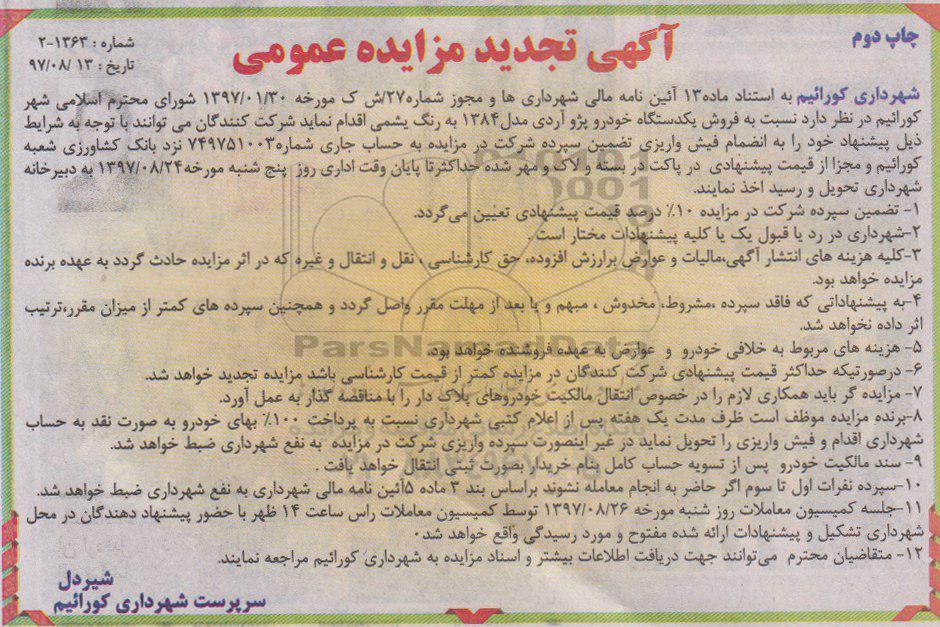 چاپ دوم
آگهی تجدید مزایده عمومی
شماره : ۱۳۶۳-۲
تاریخ : ۱۳ /۹۷/۰۸
شهرداری کورائیم به استناد ماده۱۳ آئین نامه مالی شهرداری ها و مجوز شماره۲۷/ش ک مورخه ۱۳۹۷/۰۱/۳۰ شورای محترم اسلامی شهر
کورائیم در نظر دارد نسبت به فروش یکدستگاه خودرو پژو آردی مدل۱۳۸۴ به رنگ یشمی اقدام نماید شرکت کنندگان می توانند با توجه به شرایط
ذیل پیشنهاد خود را به انضمام فیش واریزی تضمین سپرده شرکت در مزایده به حساب جاری شماره۷۴۹۷۵۱۰۰۳ نزد بانک کشاورزی شعبه
کورائیم و مجزا از قیمت پیشنهادی در پاکت در بسته و لاک و مهر شده حداکثرتا پایان وقت اداری روز پنج شنبه مورخه۱۳۹۷/۰۸/۲۴ به دبیرخانه
شهرداری تحویل و رسید اخذ نمایند.
۱- تضمین سپرده شرکت در مزایده ۱۰٪ درصد قیمت پیشنهادی تعیین می‌گردد.
۲-شهرداری در رد یا قبول یک یا کلیه پیشنهادات مختار است
۳-کلیه هزینه های انتشار آگهی،مالیات و عوارض برارزش افزوده، حق کارشناسی ، نقل و انتقال و غیره که در اثر مزایده حادث گردد به عهده برنده
مزایده خواهد بود.
۴-به پیشنهاداتی که فاقد سپرده ،مشروط، مخدوش ، مبهم و یا بعد از مهلت مقرر واصل گردد و همچنین سپرده های کمتر از میزان مقرر،ترتیب
اثر داده نخواهد شد.
۵- هزینه های مربوط به خلافی خودرو و عوارض به عهده فروشنده خواهد بود.
۶- درصورتیکه حداکثر قیمت پیشنهادی شرکت کنندگان در مزایده کمتر از قیمت کارشناسی باشد مزایده تجدید خواهد شد.
۷- مزایده گر باید همکاری لازم را در خصوص انتقال مالکیت خودروهای پلاک دار را با مناقصه گذار به عمل آورد.
۸-برنده مزایده موظف است ظرف مدت یک هفته پس از اعلام کتبی شهرداری نسبت به پرداخت ۱۰۰٪ بهای خودرو به صورت نقد به حساب
شهرداری اقدام و فیش واریزی را تحویل نماید در غیر اینصورت سپرده واریزی شرکت در مزایده به نفع شهرداری ضبط خواهد شد.
۹- سند مالکیت خودرو پس از تسویه حساب کامل بنام خریدار بصورت ثبتی انتقال خواهد یافت .
۱۰-سپرده نفرات اول تا سوم اگر حاضر به انجام معامله نشوند براساس بند ۳ ماده ۵آئین نامه مالی شهرداری به نفع شهرداری ضبط خواهد شد.
۱۱-جلسه کمیسیون معاملات روز شنبه مورخه ۱۳۹۷/۰۸/۲۶ توسط کمیسیون معاملات راس ساعت ۱۴ ظهر با حضور پیشنهاد دهندگان در محل
شهرداری تشکیل و پیشنهادات ارائه شده مفتوح و مورد رسیدگی واقع خواهد شد۰
۱۲- متقاضیان محترم می‌توانند جهت دریافت اطلاعات بیشتر و اسناد مزایده به شهرداری کورائیم مراجعه نمایند.
شیردل
سرپرست شهرداری کورائیم
ParsNamadData